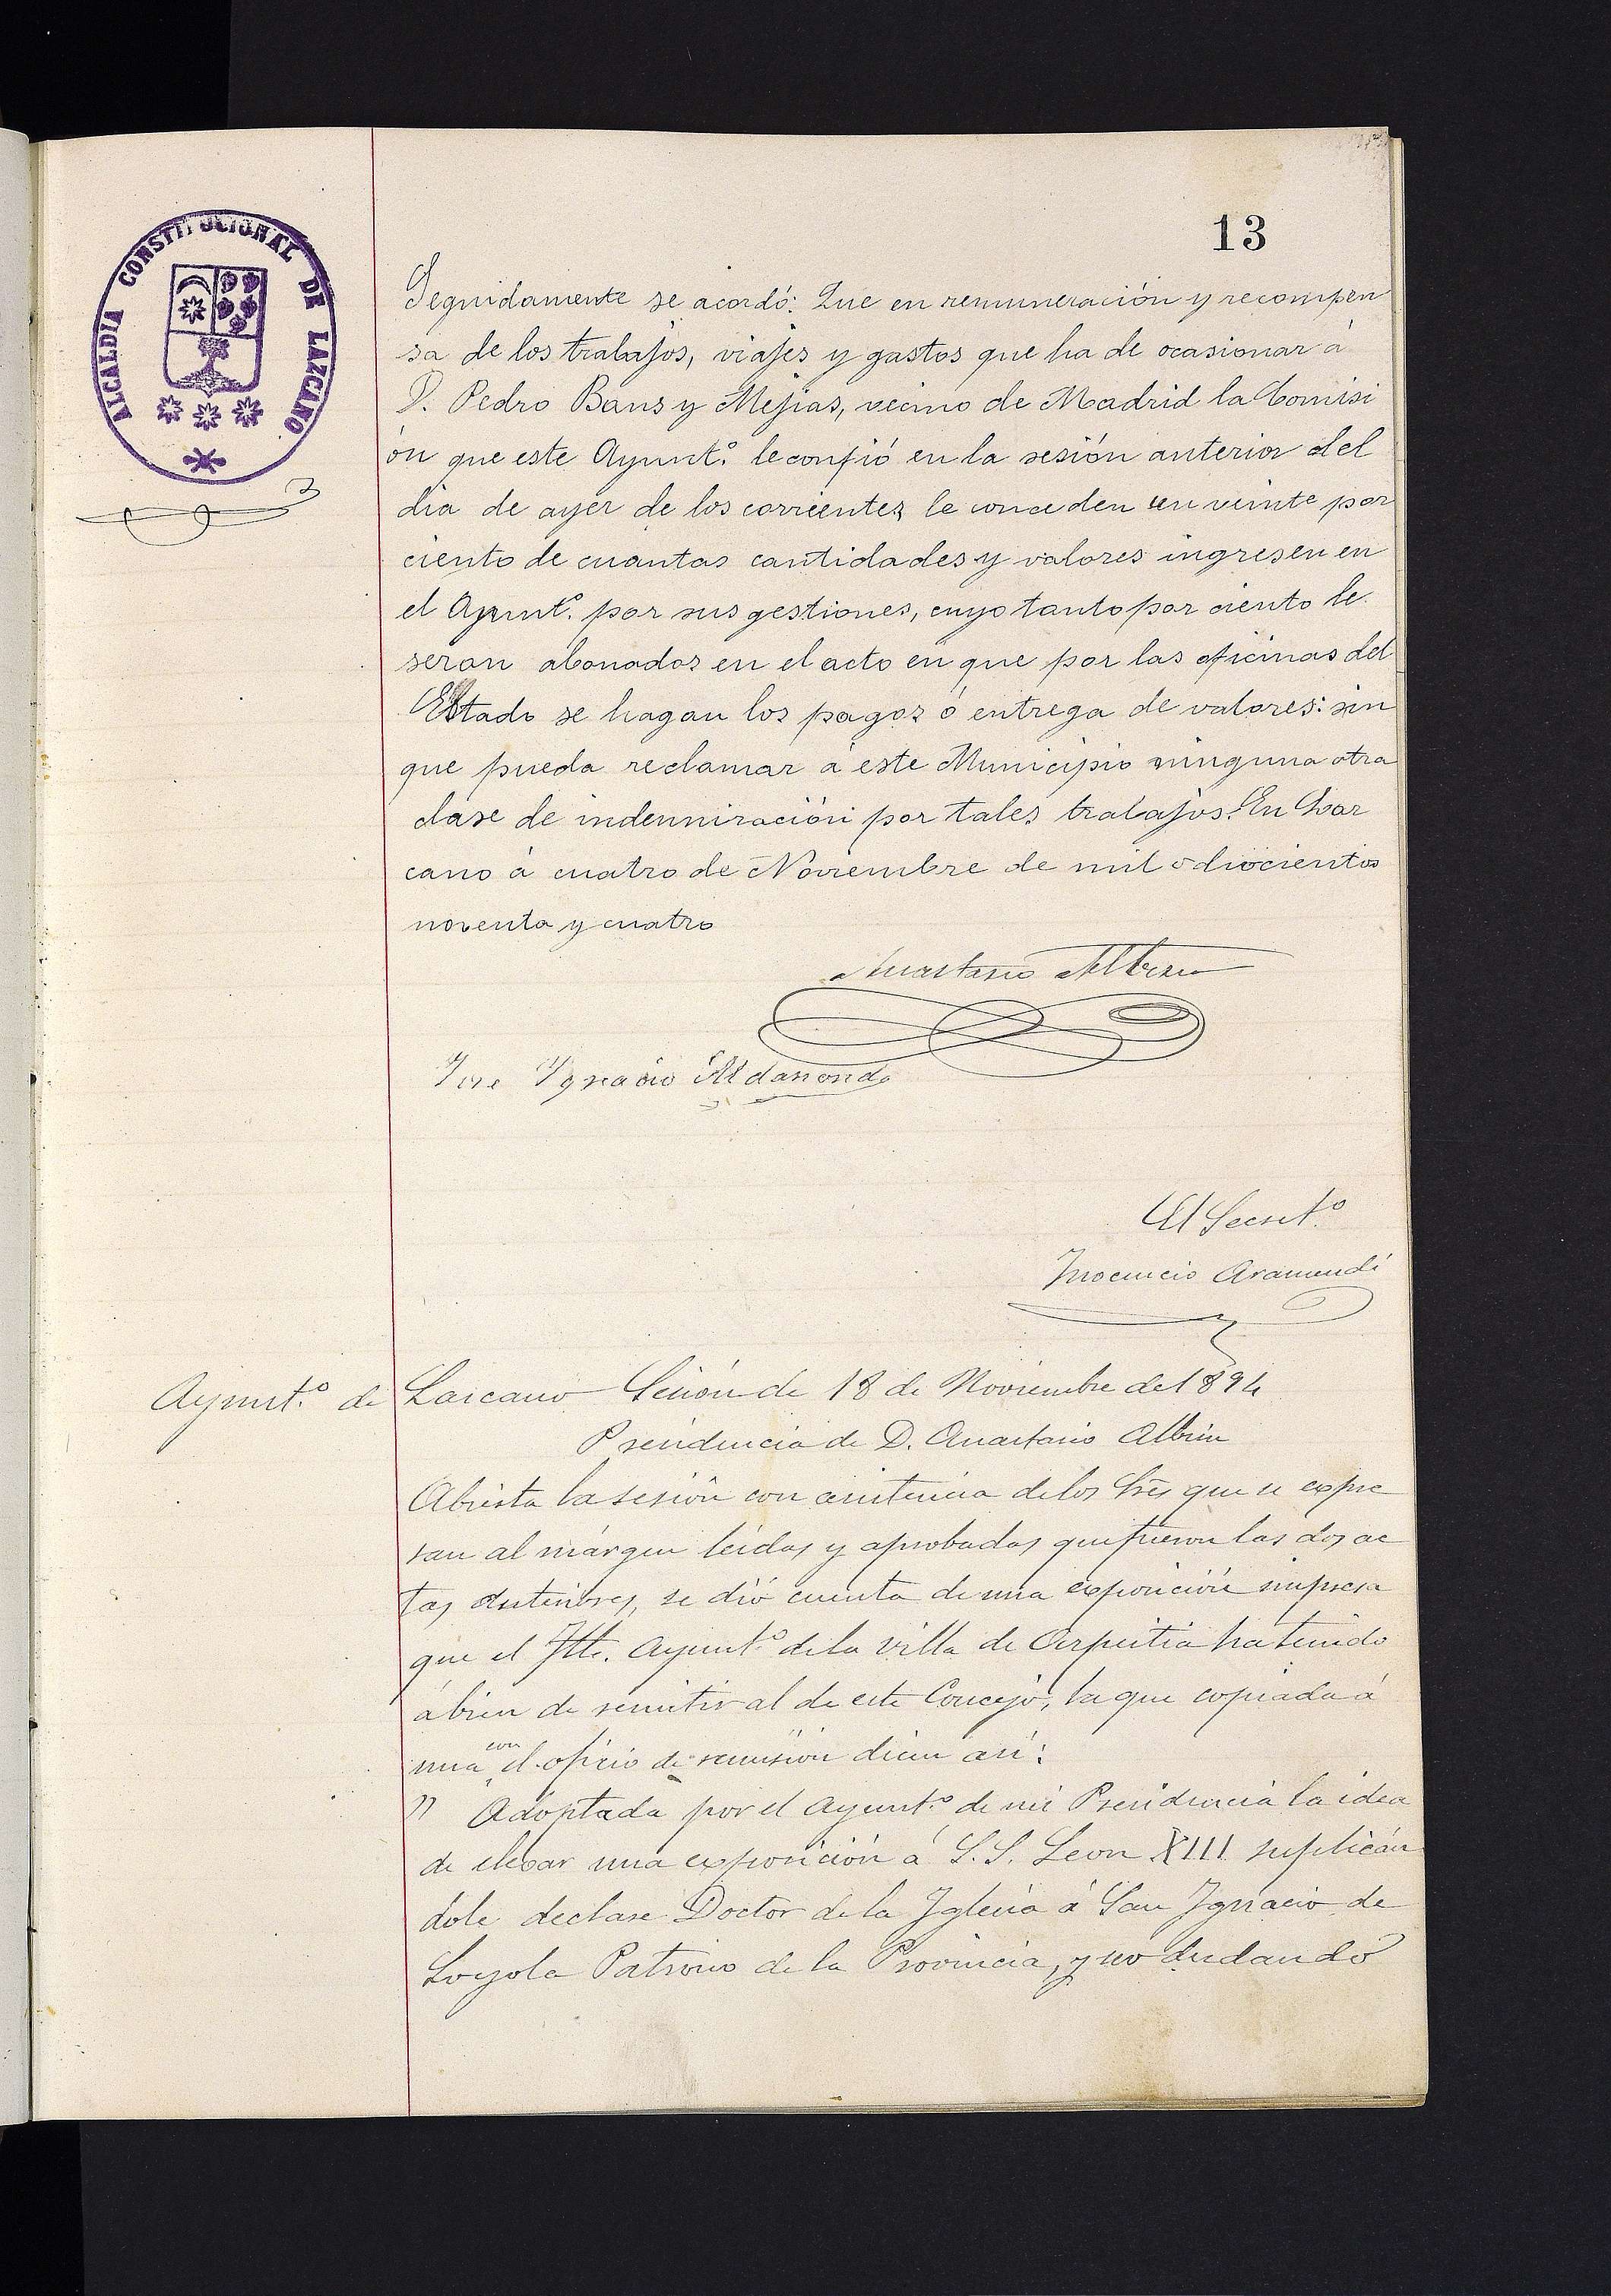 13
ALCALDIA CONSTITUCIONAL DE LAZCANO
Seguidamente se acordó: Que en remuneración y recompen
sa de los trabajos, viajes y gastos que ha de ocasionar á
D. Pedro Bans y Mejias, vecino de Madrid la Comisi
ón que este Ayunt.º le confió en la sesión anterior del
dia de ayer de los corrientes le conceden un veinte por
ciento de cuantas cantidades y valores ingresen en
el Ayunt.º por sus gestiones, cuyo tanto por ciento le
seran abonados en el acto en que por las oficinas del
Estado se hagan los pagos ó entrega de valores: sin
que pueda reclamar á este Municipio ninguna otra
clase de indemnización por tales trabajos. En Laz
cano á cuatro de Noviembre de mil ochocientos
noventa y cuatro
Anastasio Albisu
Jose Ygnacio Aldasoro
El Secret.º
Inocencio Aramendi
Ayunt.º de Lazcano Sesión de 18 de Noviembre de 1894
Presidencia de D. Anastasio Albisu
Abierta la sesión con asistencia de los Sres que se expre
san al márgen leidas y aprobadas que fueron las dos ac
tas anteriores, se dió cuenta de una exposición impresa
que el Iltre. Ayunt.º de la villa de Azpeitia ha tenido
á bien de remitir al de este Concejo, la que copiada á
una con el oficio de remisión dicen así:
" Adoptada por el Ayunt.º de mi Presidencia la idea
de elevar una exposición á S.S. Leon XIII suplicán
dole declare Doctor de la Iglesia á San Ignacio de
Loyola Patrono de la Provincia, y no dudando